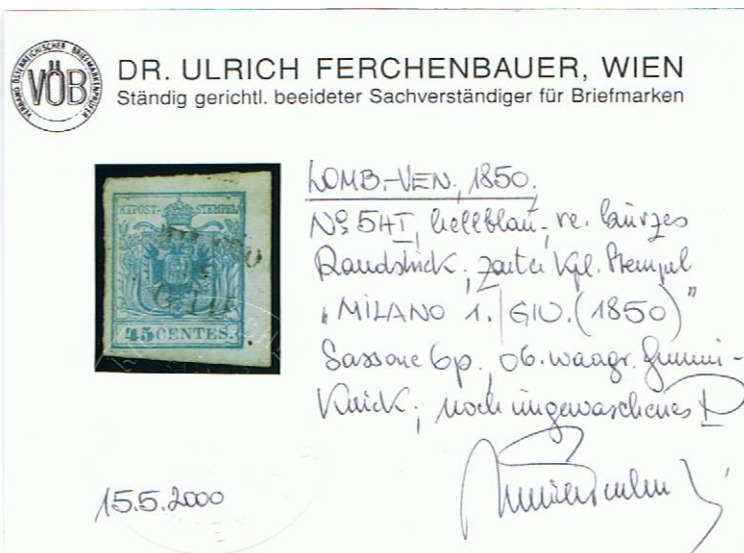 VERBAND ÖSTERREICHISCHER BRIEFMARKENPRÜFER
VÖB
DR. ULRICH FERCHENBAUER, WIEN
Ständig gerichtl. beeideter Sachverständiger für Briefmarken
KKPOST-STEMPEL
45 CENTES.
LOMB.-VEN., 1850,
No 5HI, hellblau, re. kurzes
Randstück, zarter Kpl. Stempel
"MILANO 1./GIU. (1850)"
Sassone 6p. ob. waagr. Gummi-
Knick, noch ungewaschenes
15.5.2000